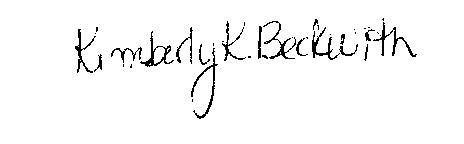 Kimberly K. Beckwith